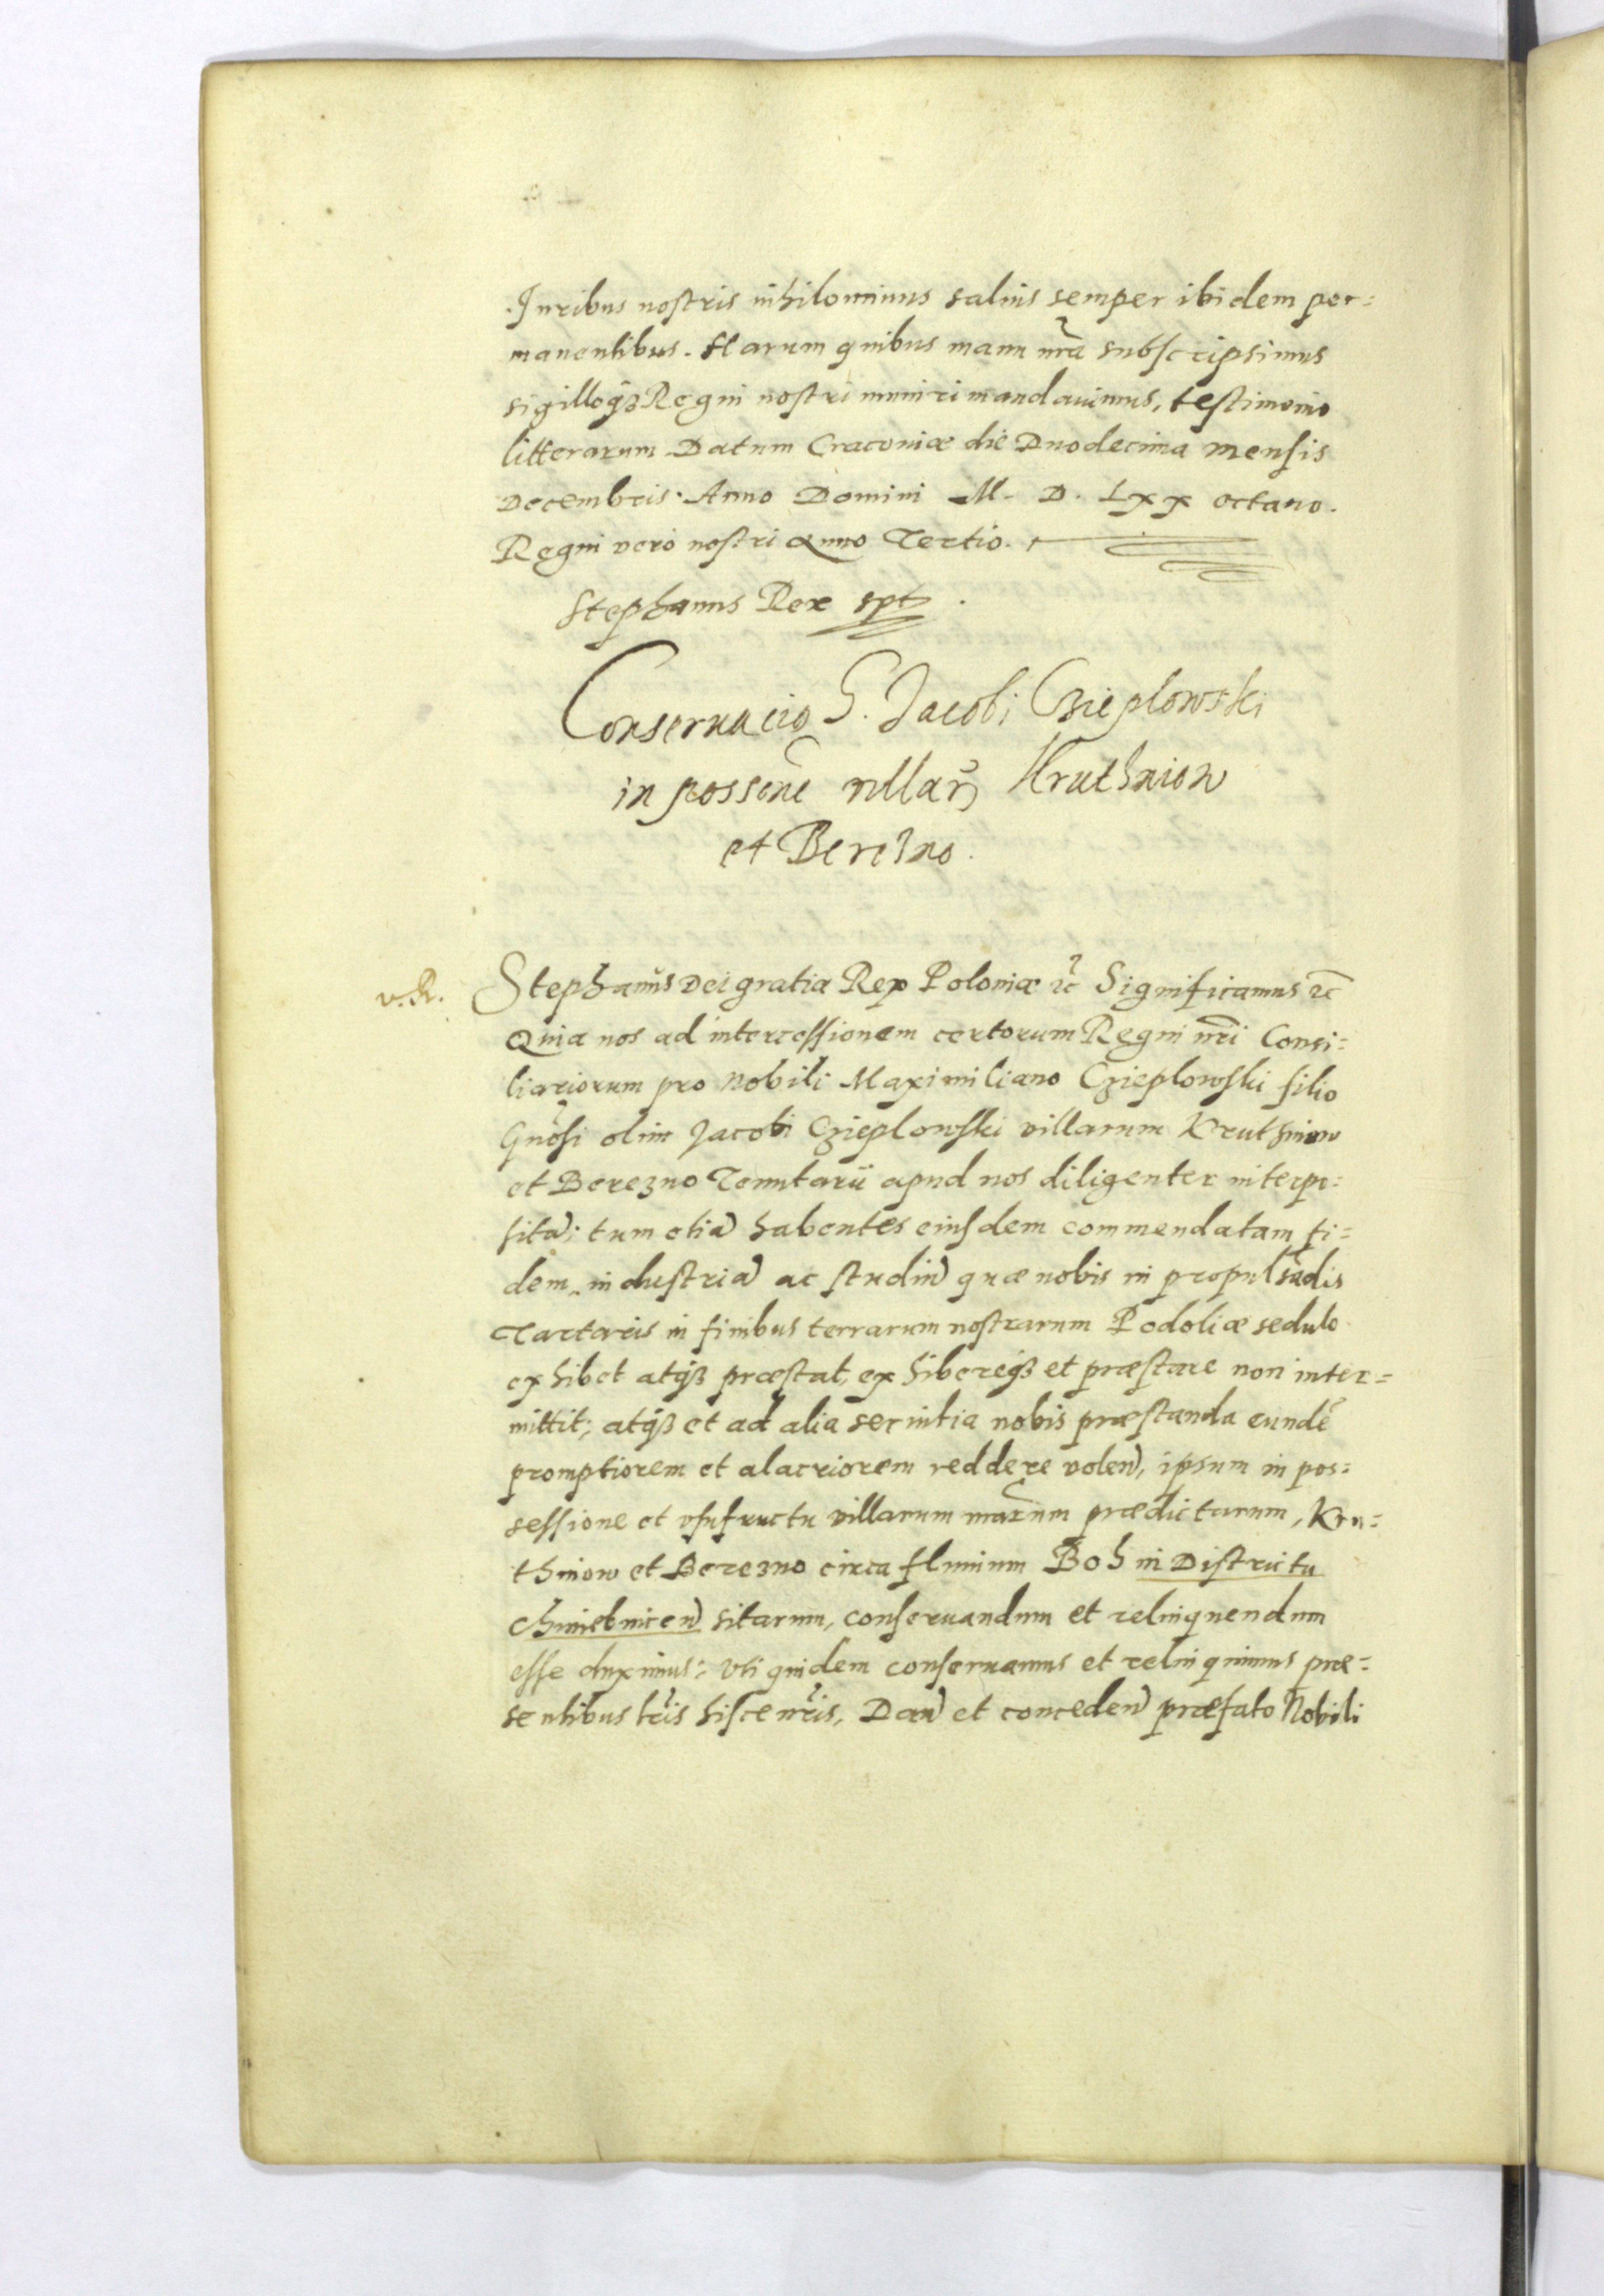 Iuribus nostris nihilominus saluis semper ibidem per=
manentibus. Harum quibus manu nrã subscripsimus
sigilloqȝ Regni nostri muniri mandauimus, testimonio
litterarum Datum Cracouiæ die Duodecima mensis
Decembris. Anno Domini M. D. Lxx octauo.
Regni vero nostri Anno Tertio.
Stephanus Rex spt.
Conseruacio G. Jacobi Czieplowski
in possenẽ villar̃ Kruthniow
et Berezno.
v. R.
Stephanus Dei gratia Rex Poloniæ ꝛc̃ Significamus ꝛc̃
Quia nos ad intercessionem certorum Regni nrĩ Consi=
liariorum pro Nobili Maximiliano Czieplowski filio
Gnõsi olim Jacobi Czieplowski villarum Kruthniow
et Berezno Tenutarii apud nos diligenter interpo=
sitã; tum etiã habentes eiusdem commendatam fi=
dem, industriã ac studiũ quæ nobis in propulsãdis
Tartaris in finibus terrarum nostrarum Podoliæ sedulo
exhibet atqȝ præstat, exhibereqȝ et præstare non inter=
mittit; atqȝ et ad alia seruitia nobis præstanda eundẽ
promptiorem et alacriorem reddere voleñ, ipsum in pos=
sessione et vsufructu villarum nrãrum prædictarum, Kru=
thniow et Berezno circa fluuium Boh in Districtu
Chmielniceñ sitarum, conseruandum et relinquendum
esse duximus; vti quidem conseruamus et relinquimus præ=
sentibus lrĩs hisce nrĩs, Dañ et concedeñ præfato Nobili